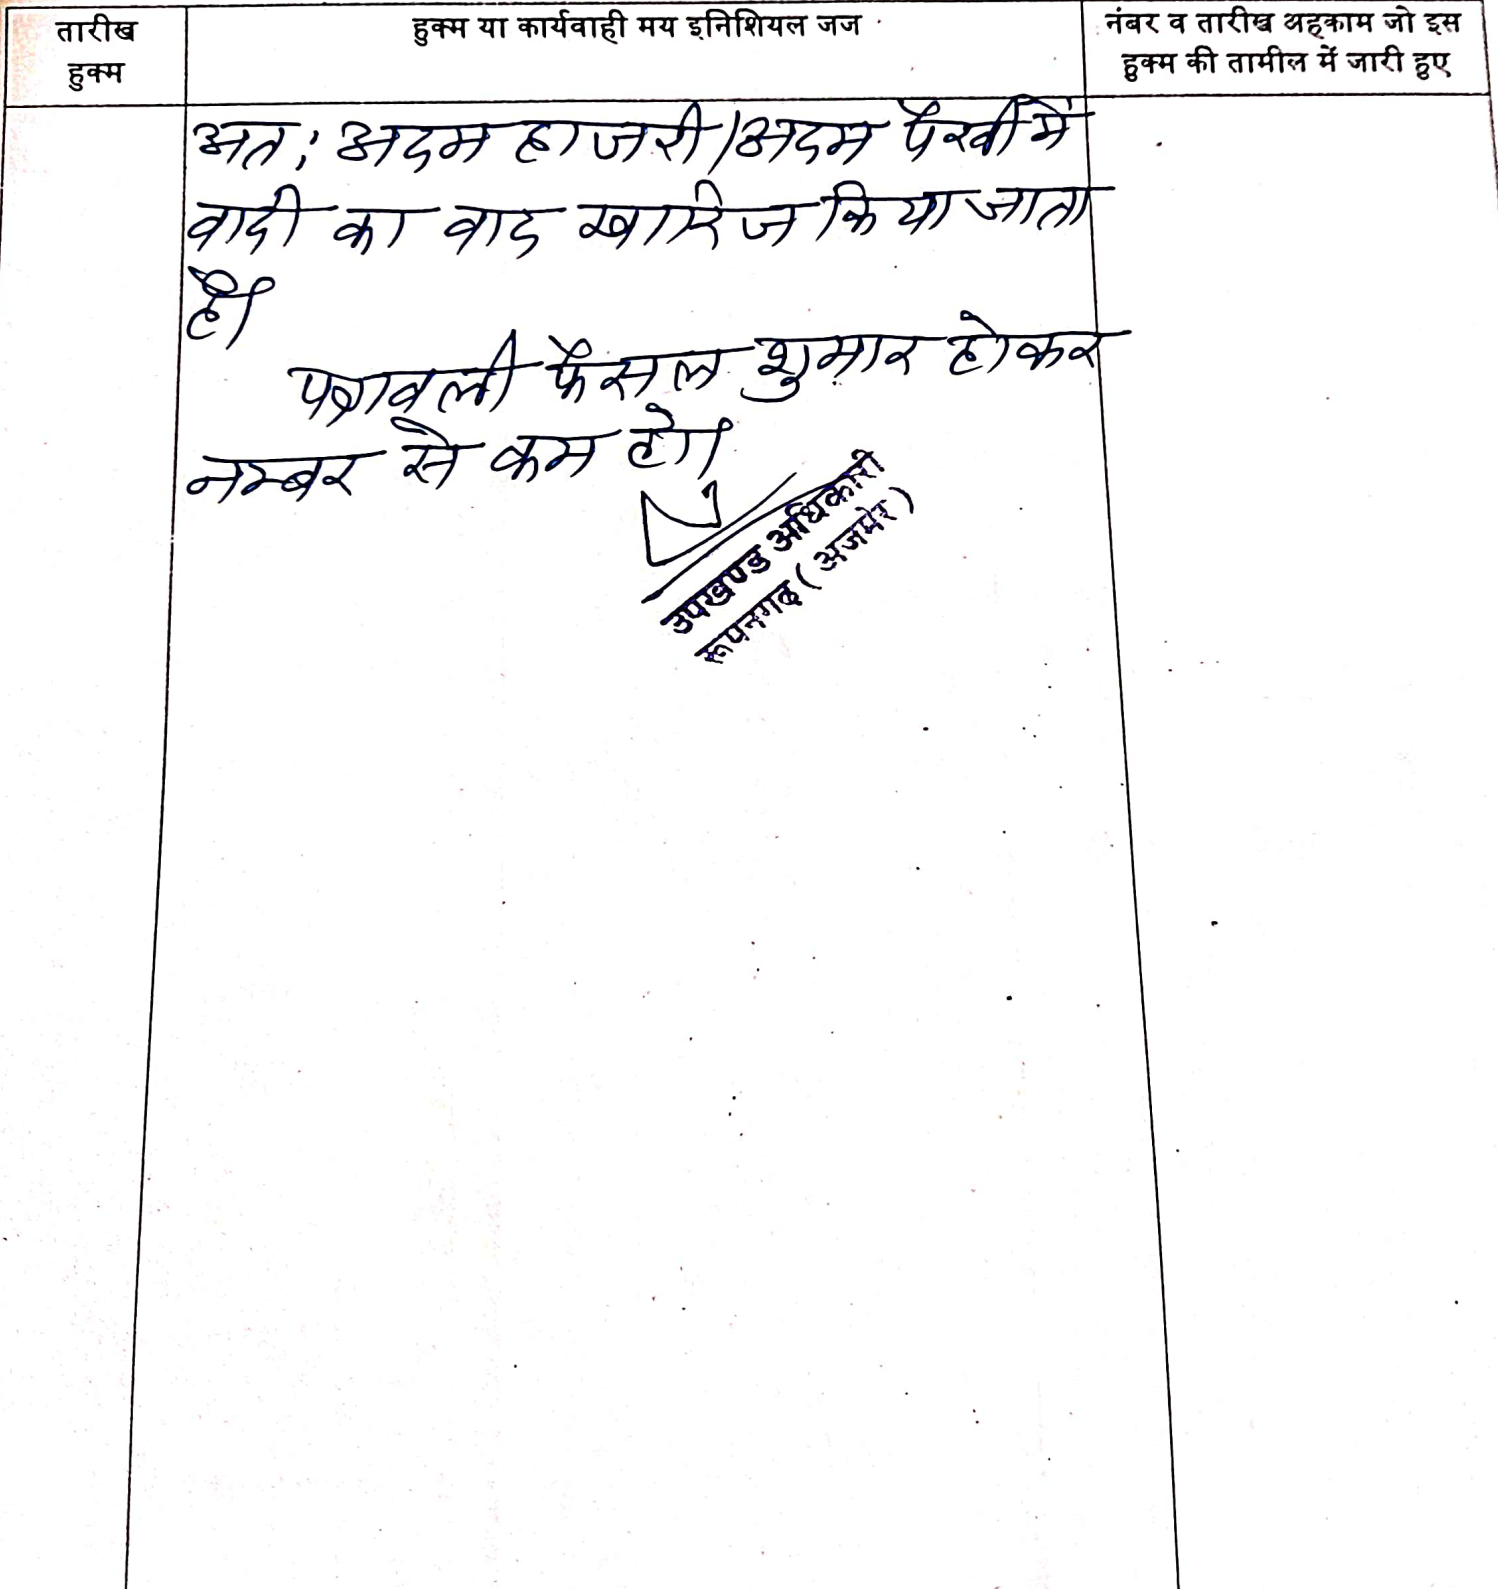 तारीख हुक्म या कार्यवाही मय इनिशियल जज नंबर व तारीख अहकाम जो इस
हुक्म हुक्म की तामील में जारी हुए
अत: अदम हाजरी/अदम पैरवी में
वादी का वाद खारिज किया जाता
है।
पत्रावली फैसल शुमार होकर
नम्बर से कम हो।
उपखण्ड अधिकारी
रूपनगढ (अजमेर)